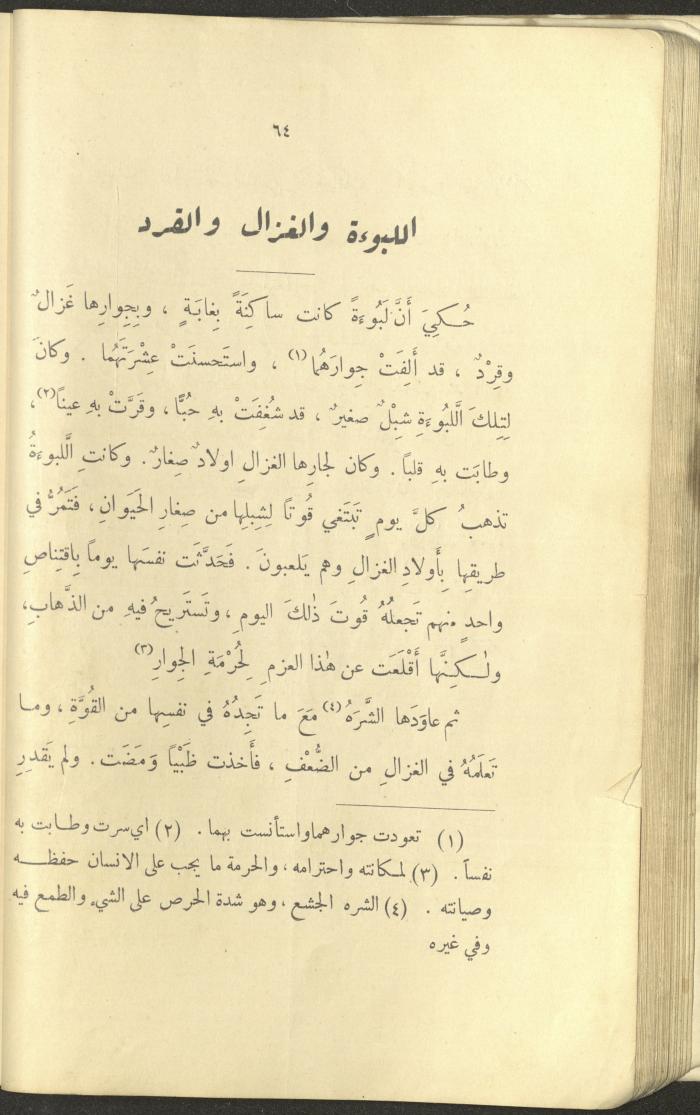 ٦٤
اللبوءة والغزال والقرد
حُكِيَ أَنَّ لَبُوءَةً كانت ساكِنَةً بِغابَةٍ ، وبِجِوارِها غَزالٌ
وقِرْدٌ ، قد أَلِفَتْ جِوارَهُما (١) ، واستَحسنَتْ عِشْرَتَهُما . وكانَ
لِتِلكَ اللَّبُوءَةِ شِبْلٌ صغيرٌ ، قد شُغِفَتْ بهِ حُبًّا ، وقَرَّتْ بهِ عيناً (٢) ،
وطابَت بهِ قلباً . وكان لجارِها الغزالِ اولادٌ صِغارٌ . وكانتِ اللَّبوءَةُ
تذهبُ كلَّ يومٍ تَبتَغي قُوتاً لِشِبلِها من صِغارِ الحَيَوانِ ، فَتَمُرُّ في
طريقِها بِأَولادِ الغزالِ وهم يَلعبونَ . فَحَدَّثَت نفسَها يوماً بِاقتِناصِ
واحدٍ منهم تَجعلُهُ قُوتَ ذٰلكَ اليومِ ، وتَستَريحُ فيهِ من الذَّهابِ ،
ولٰكِنَّها أَقْلَعَت عن هٰذا العزمِ لِحُرْمَةِ الجِوارِ (٣)
ثم عاوَدَها الشَّرَهُ (٤) مَعَ ما تَجِدُهُ في نفسِها من القُوَّةِ ، وما
تَعلَمُهُ في الغزالِ مِن الضُّعْفِ ، فأَخذت ظَبْيًا وَمَضَت . ولم يَقدِرِ
(١) تعودت جوارهما واستأنست بهما . (٢) اي سرت وطابت به
نفساً . (٣) لمكانته واحترامه ، والحرمة ما يجب على الانسان حفظه
وصيانته . (٤) الشره الجشع ، وهو شدة الحرص على الشيء والطمع فيه
وفي غيره